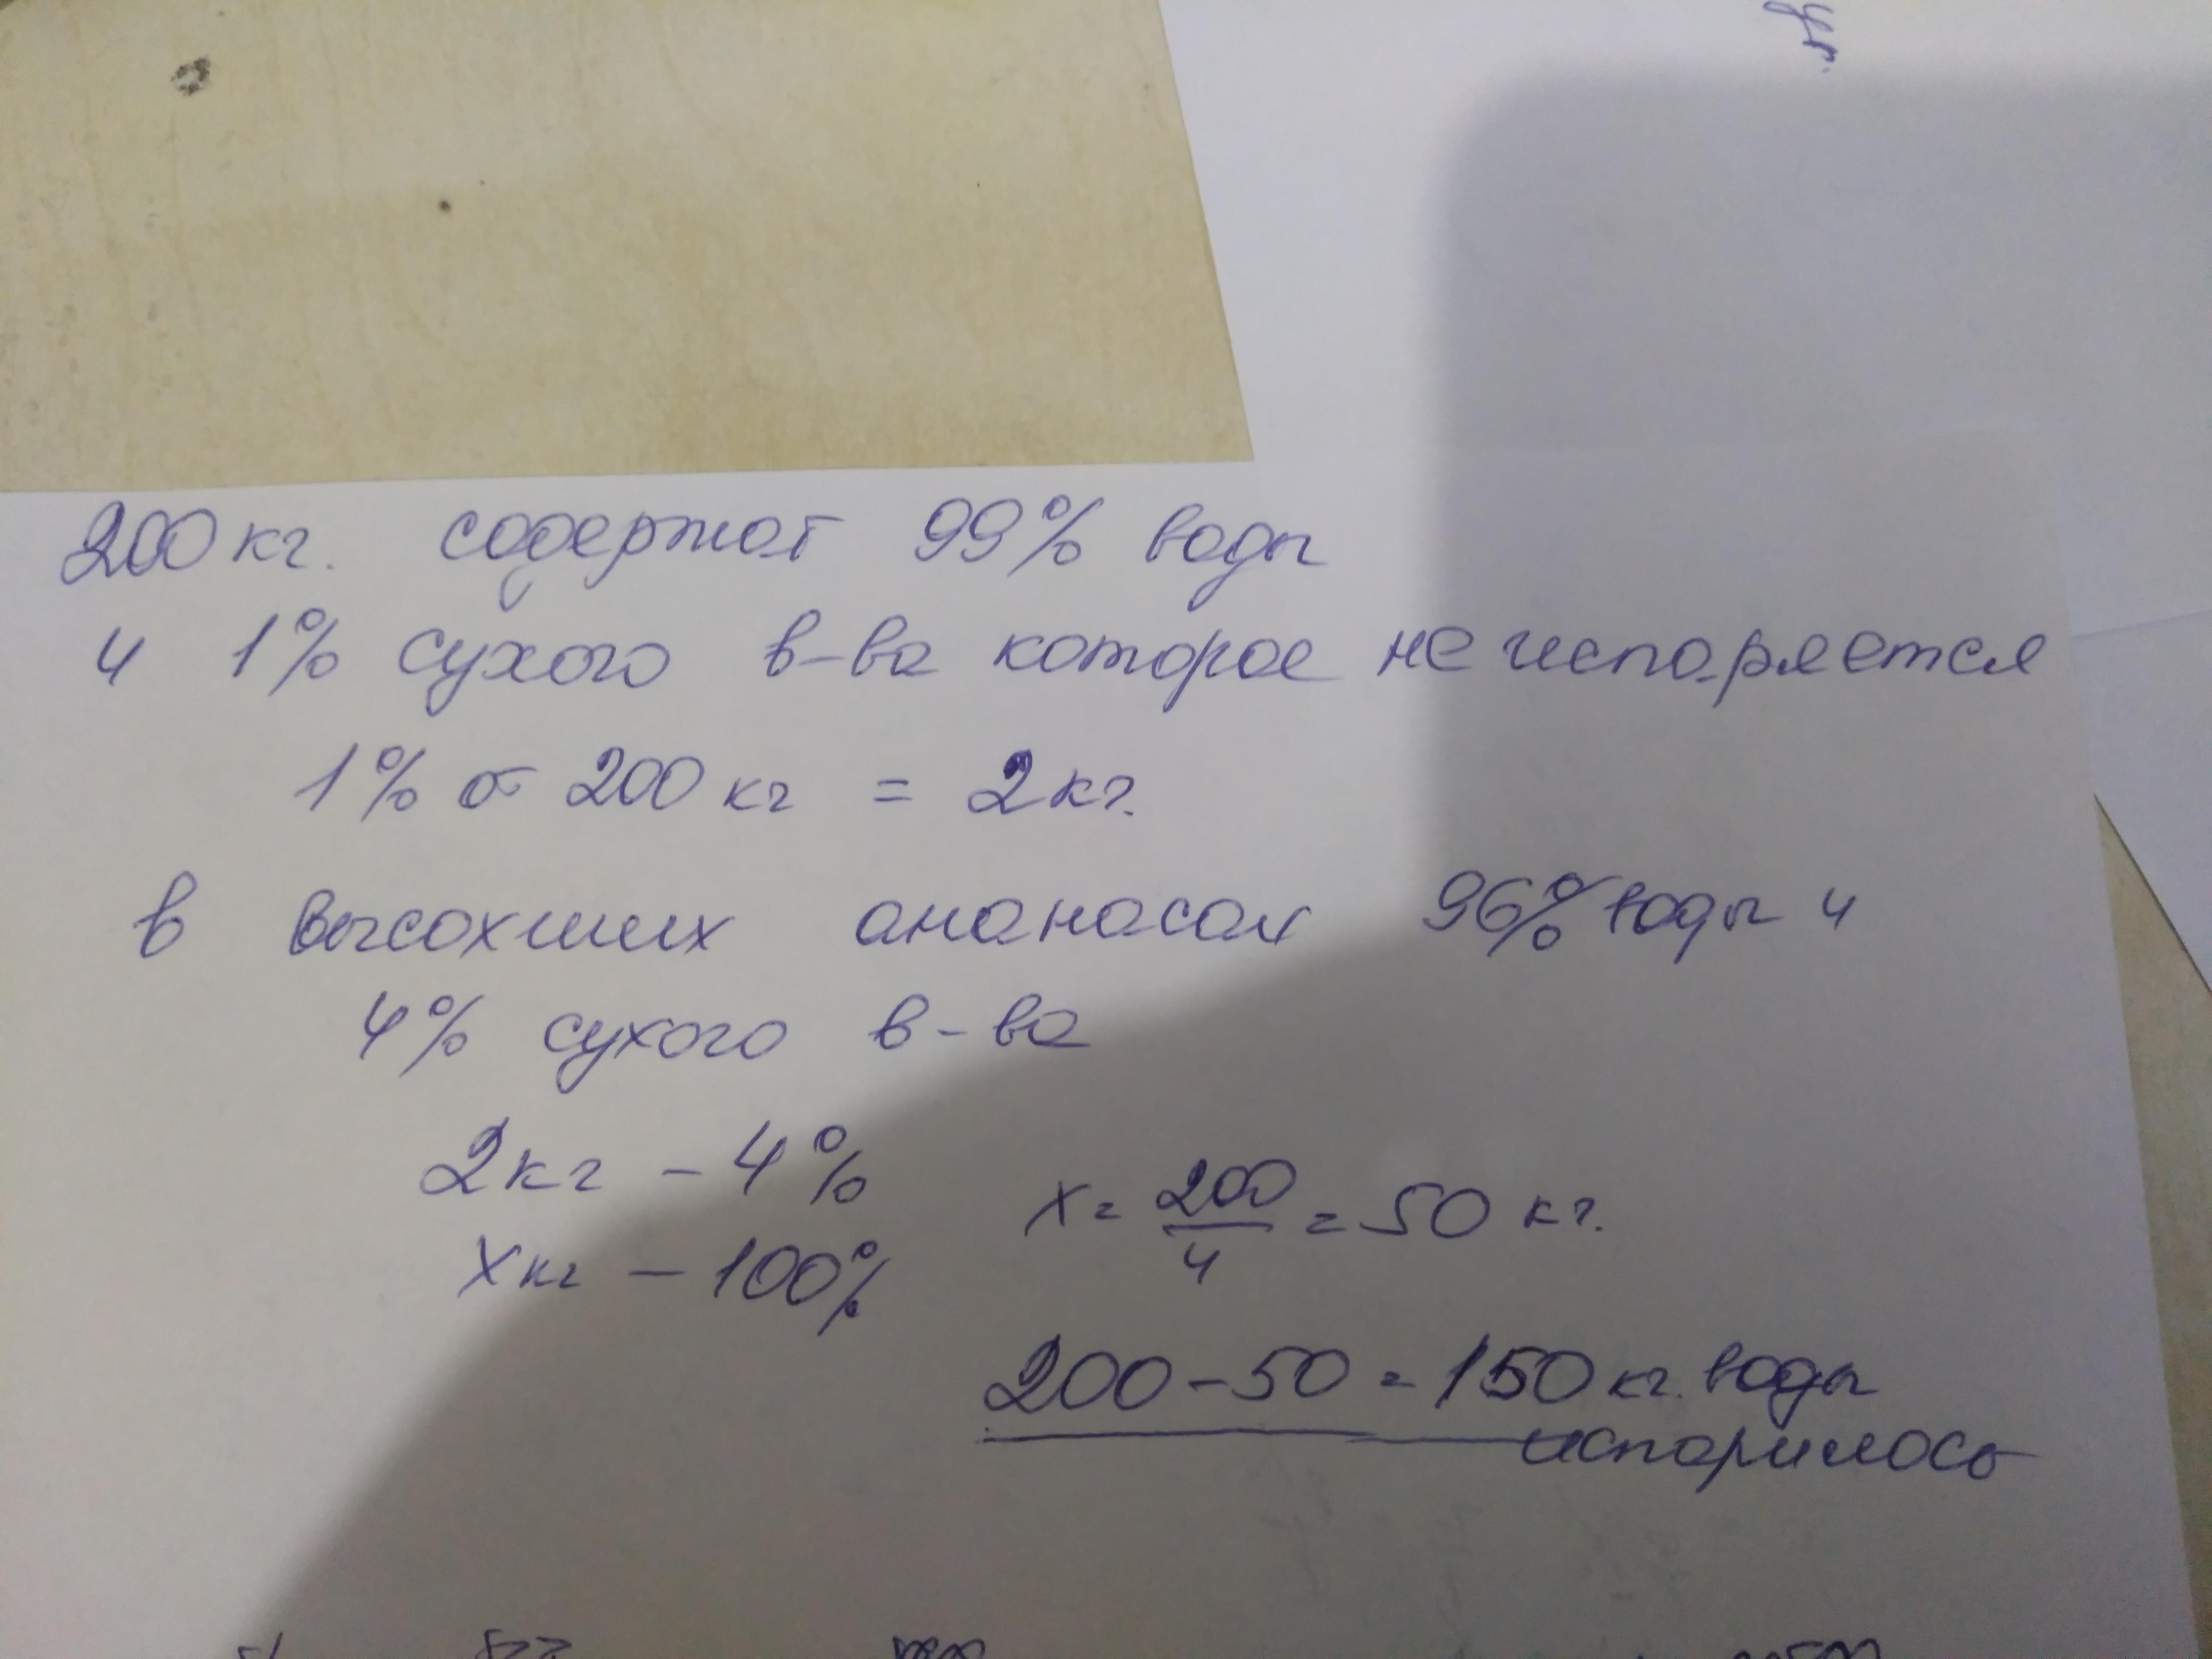 200 кг. содержат 99% воды
и 1% сухого в-ва которое не испаряется
1% от 200 кг = 2 кг.
в высохших ананасах 96% воды и
4% сухого в-ва
2 кг – 4%
x кг – 100%
x = 200/4 = 50 кг.
200 – 50 = 150 кг. воды
испарилось